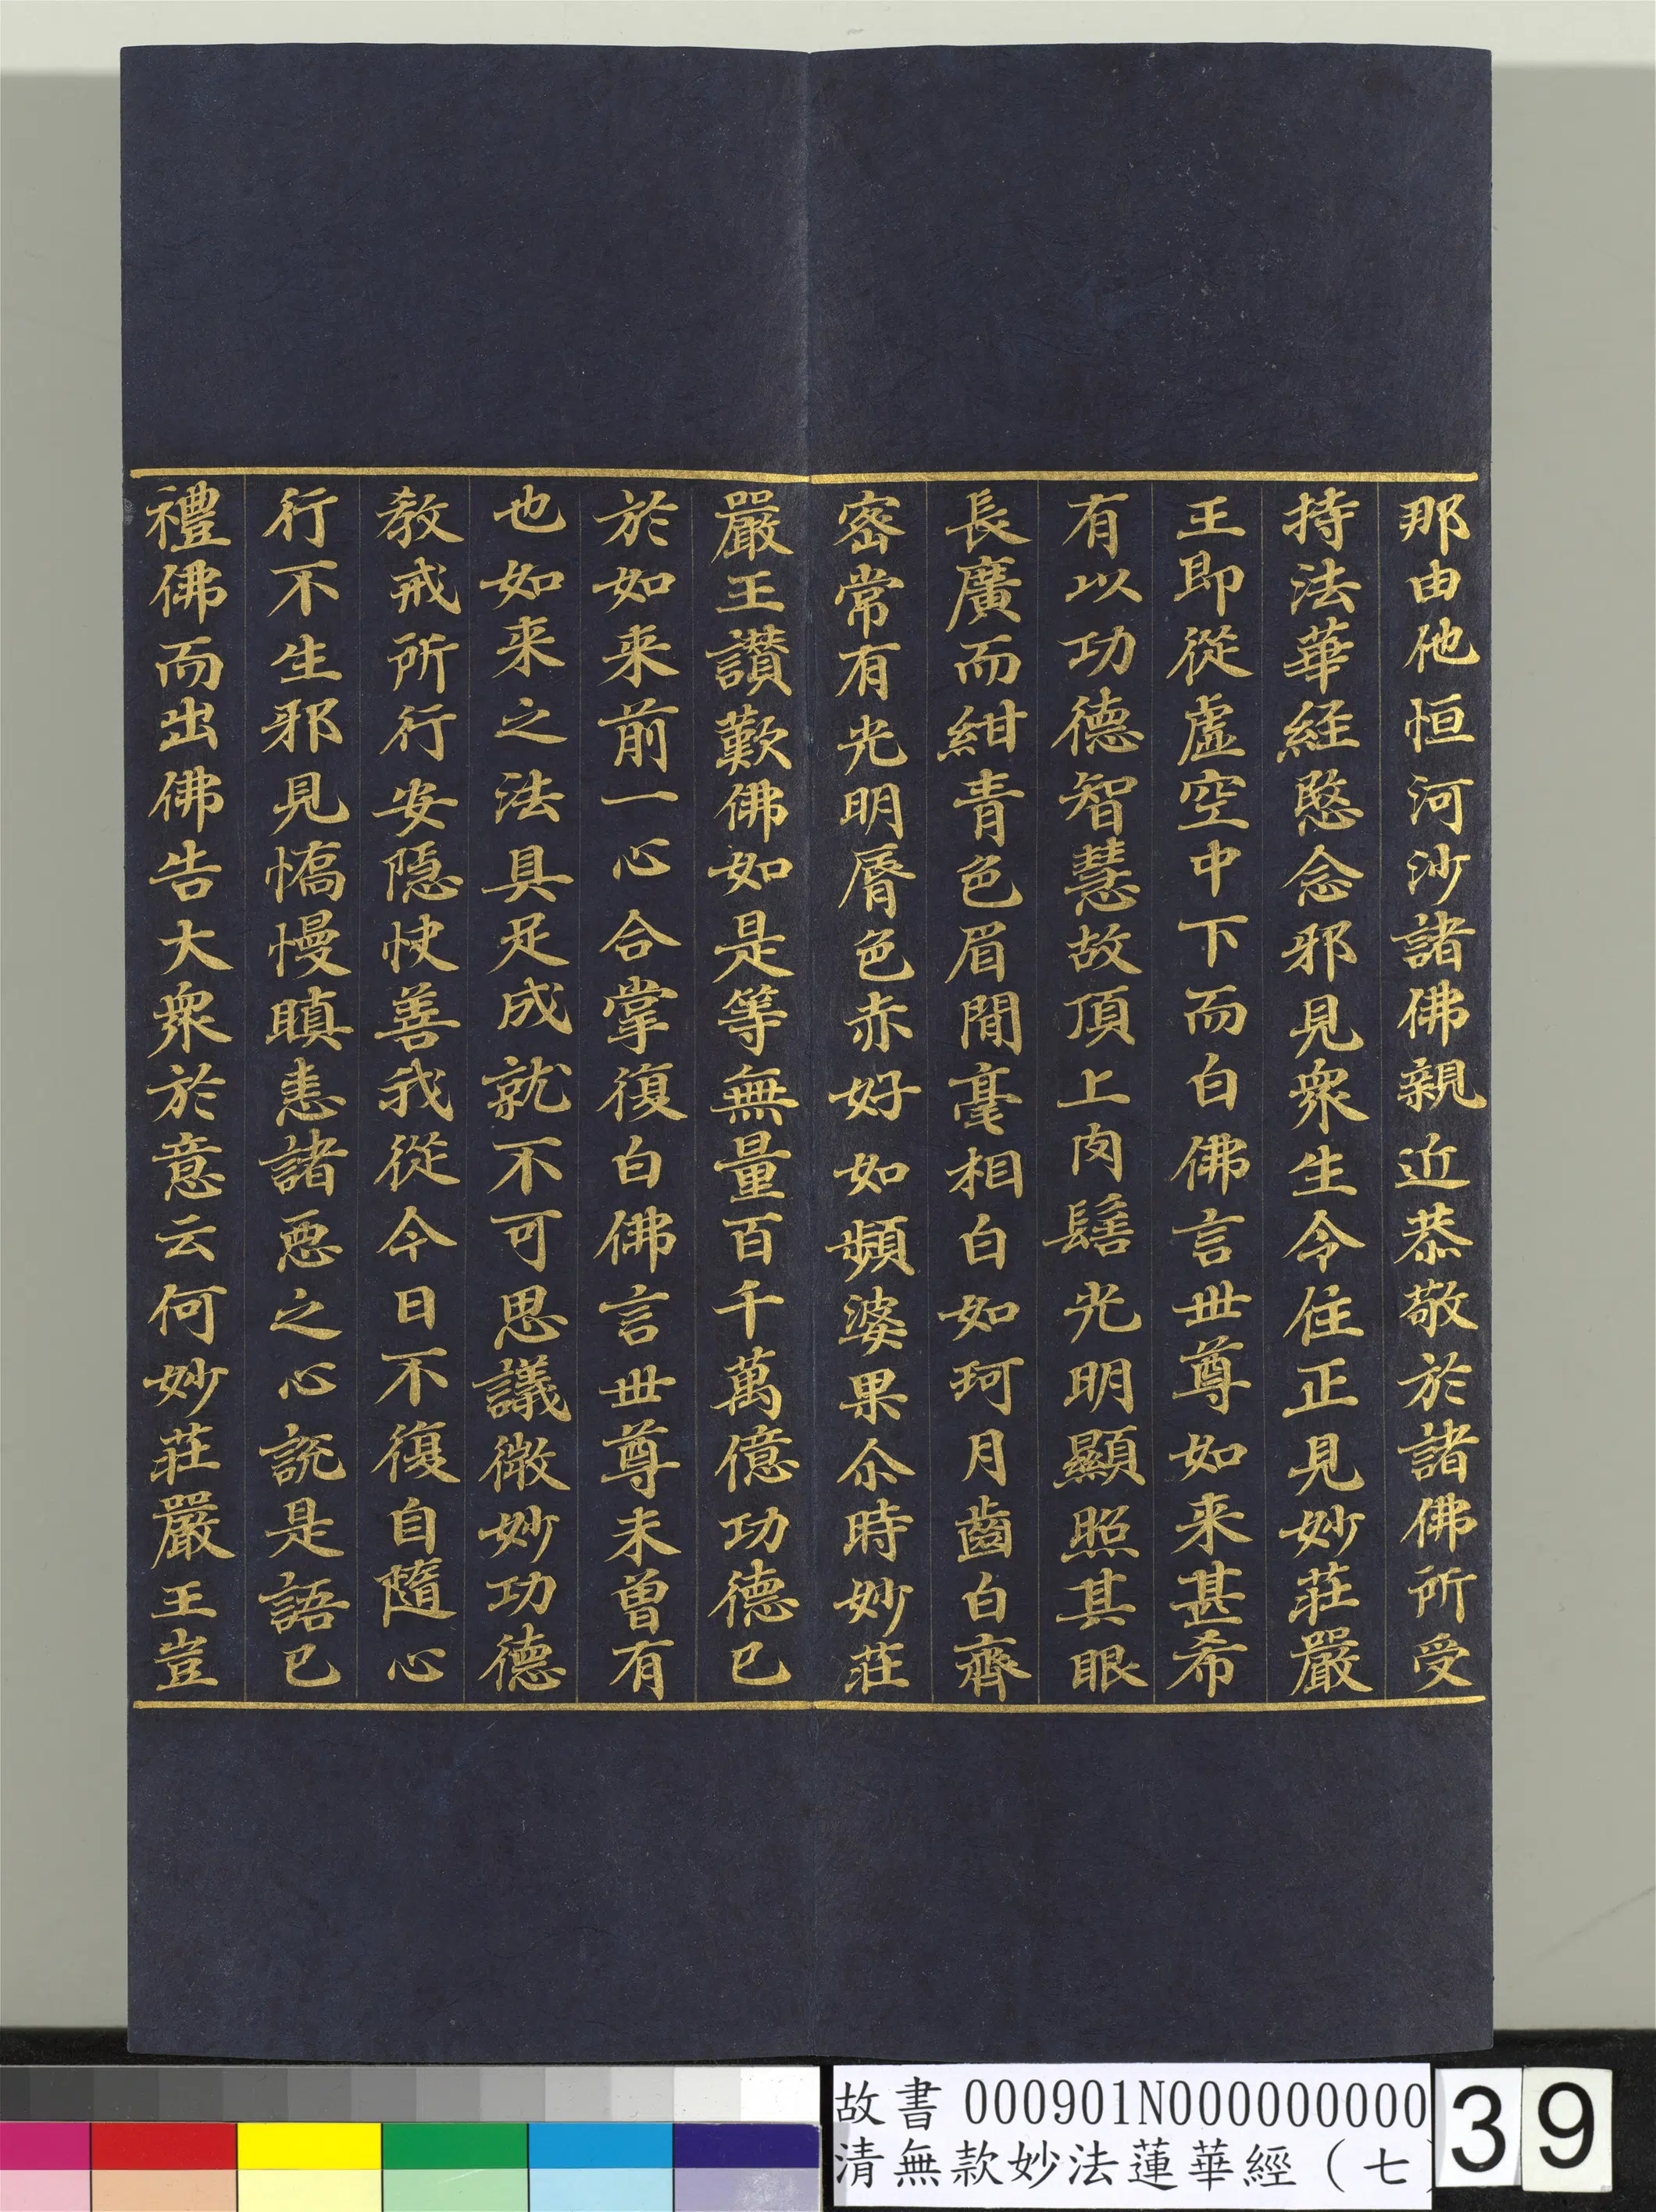 那由他恒河沙諸佛親近恭敬於諸佛所受
持法華経愍念邪見衆生令住正見妙莊嚴
王即從虛空中下而白佛言世尊如来甚希
有以功德智慧故頂上肉髻光明顯照其眼
長廣而紺青色眉間毫相白如珂月齒白齊
密常有光明脣色赤好如頻婆果尒時妙莊
嚴王讃歎佛如是等無量百千萬億功德已
於如来前一心合掌復白佛言世尊未曾有
也如来之法具足成就不可思議微妙功德
教戒所行安隱快善我從今日不復自隨心
行不生邪見憍慢瞋恚諸惡之心説是語已
禮佛而出佛告大衆於意云何妙莊嚴王豈
故書 000901N000000000
清無款妙法蓮華經（七
39